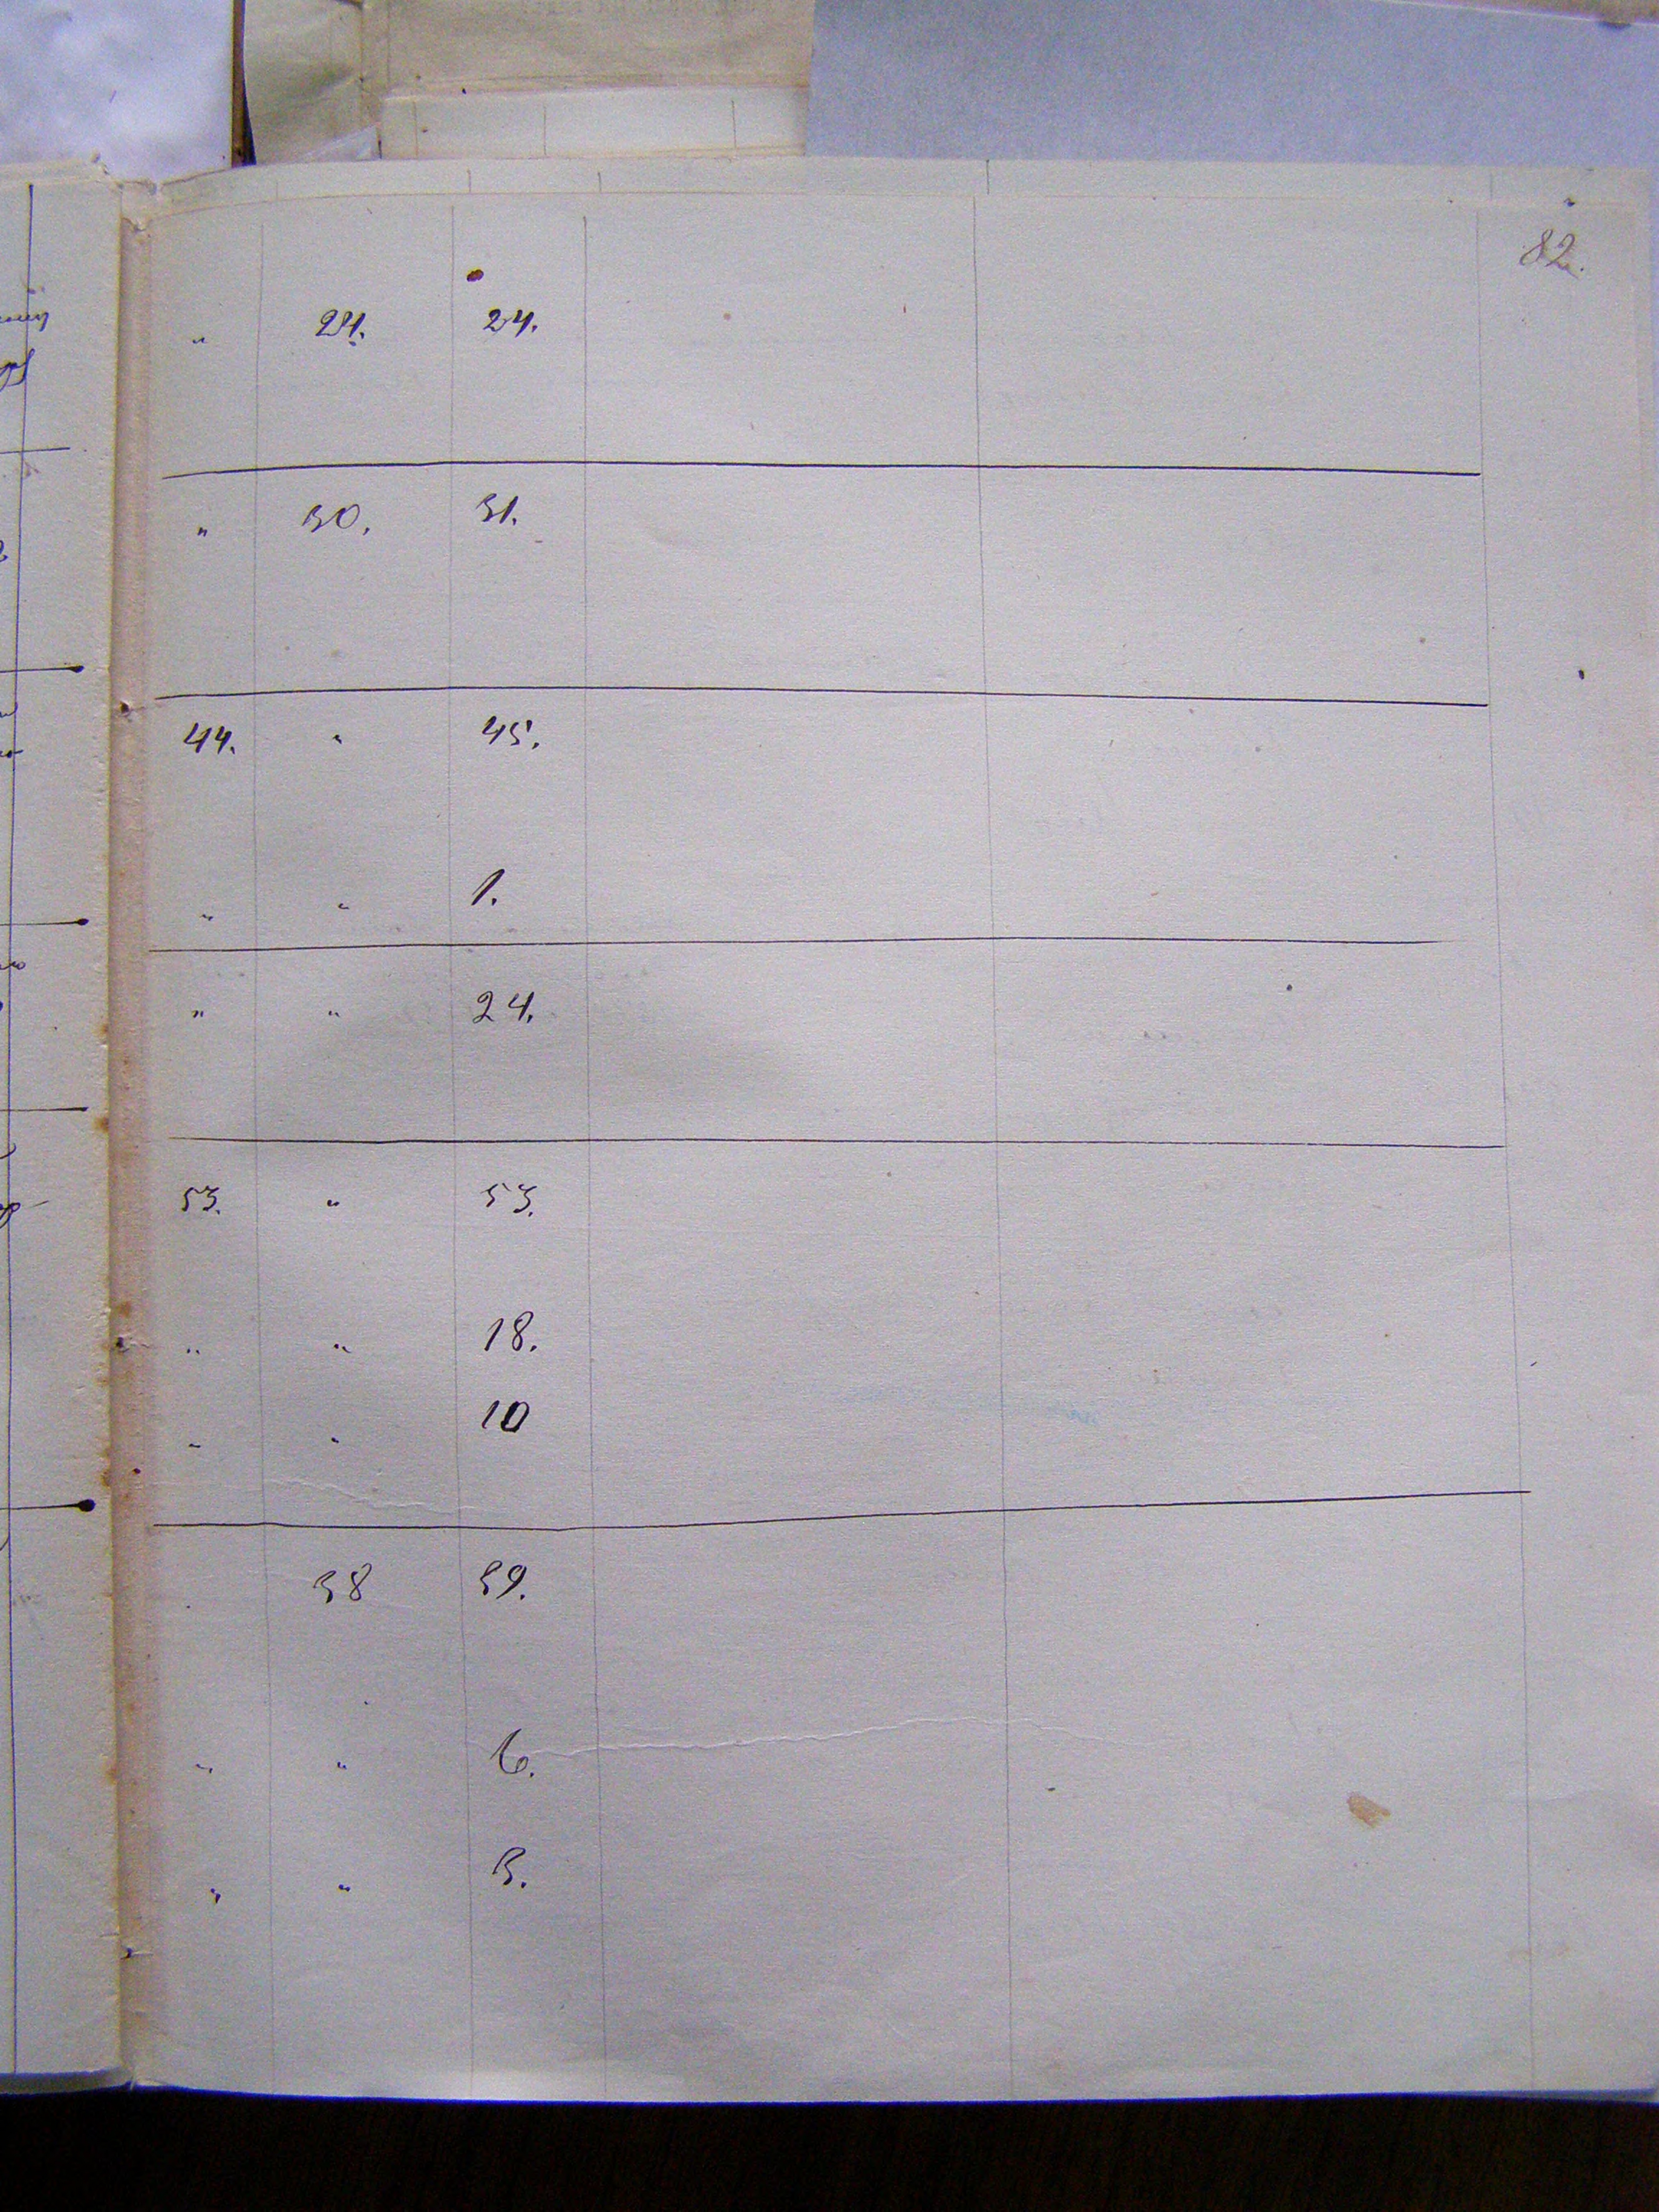 82.
" 24. 24.
" 30. 31.
44. " 45.
" " 1.
" " 24.
53. " 53.
" " 18.
" " 10
38 39.
" " 6.
" " 3.